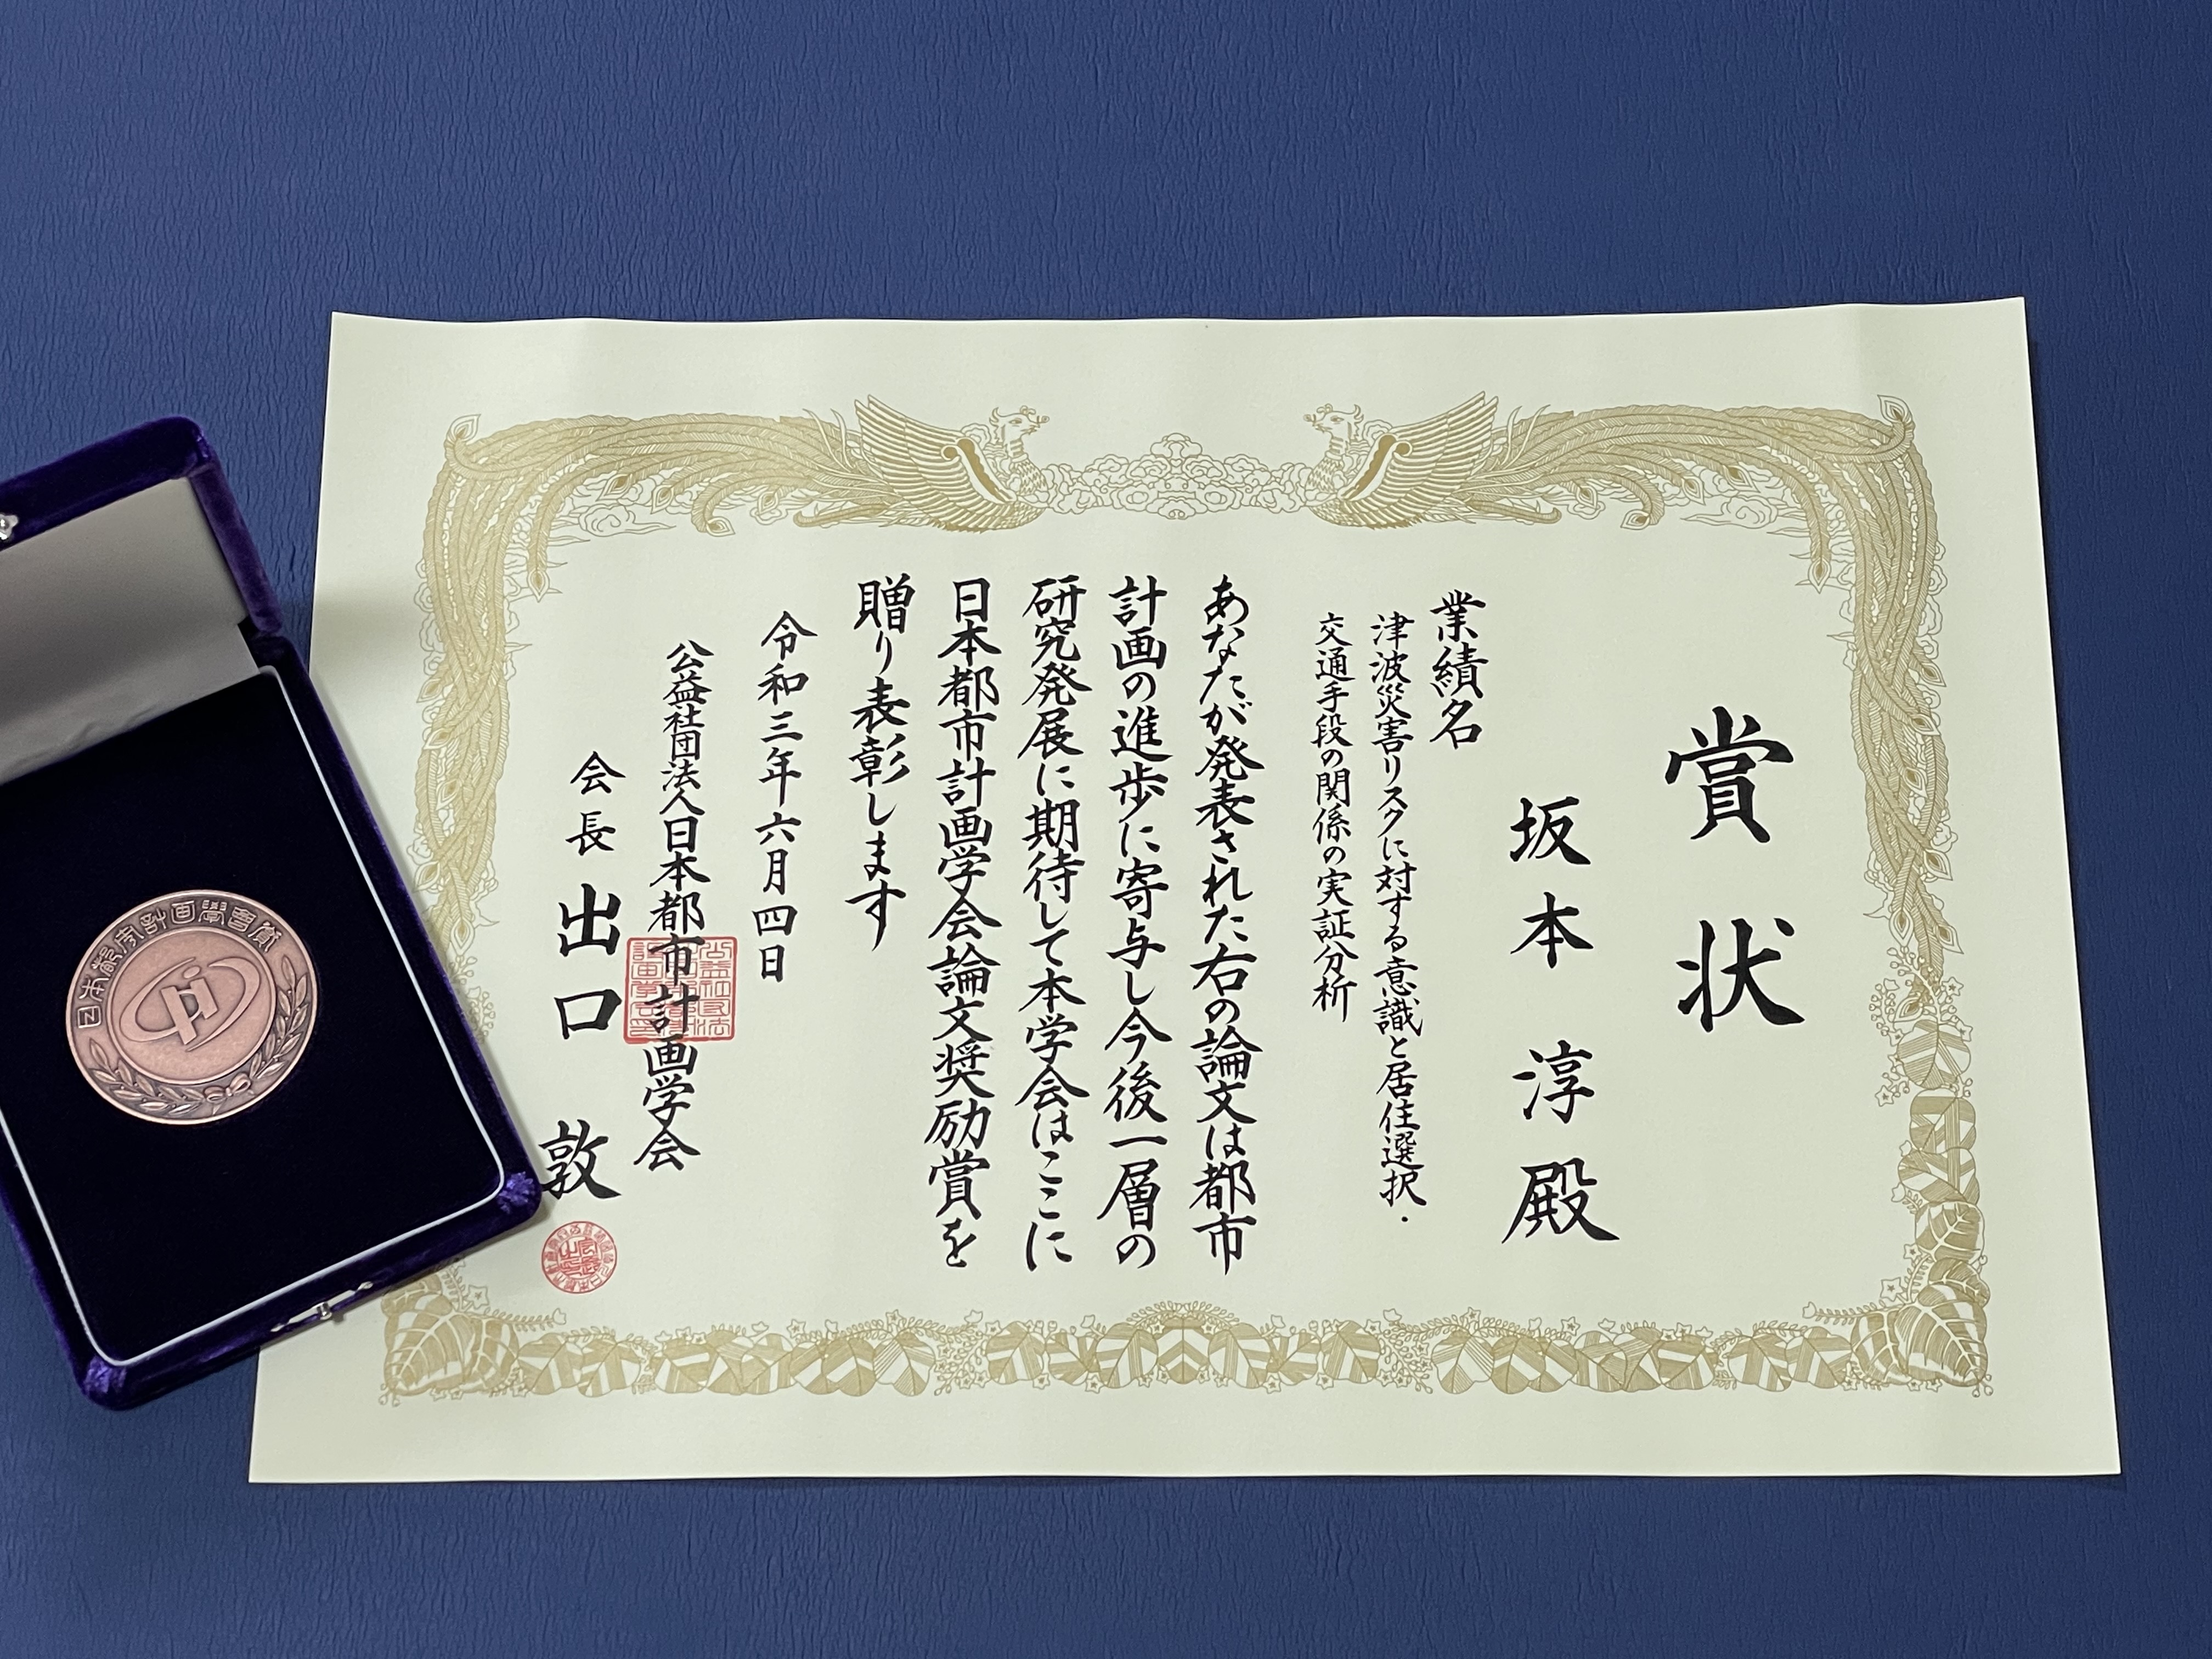 賞状
坂本淳殿
業績名
津波災害リスクに対する意識と居住選択・
交通手段の関係の実証分析
あなたが発表された右の論文は都市
計画の進歩に寄与し今後一層の
研究発展に期待して本学会はここに
日本都市計画学会論文奨励賞を
贈り表彰します
令和三年六月四日
公益社団法人日本都市計画学会
会長 出口 敦
日本都市計画學會賞